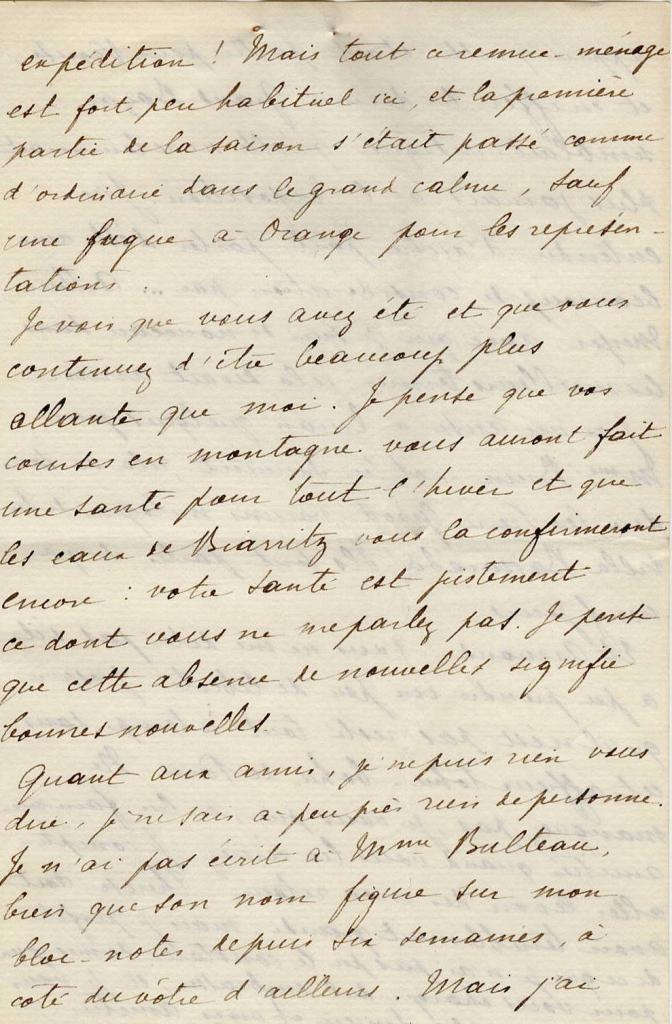 expédition ! Mais tout ce remue-ménage
est fort peu habituel ici, et la première
partie de la saison s'était passé comme
d'ordinaire dans le grand calme, sauf
une fugue à Orange pour les représen-
tations.
Je vois que vous avez été et que vous
continuez d'être beaucoup plus
allante que moi. Je pense que vos
courses en montagne vous auront fait
une santé pour tout l'hiver et que
les eaux de Biarritz vous la confirmeront
encore : votre santé est justement
ce dont vous ne me parlez pas. Je pense
que cette absence de nouvelles signifie
bonnes nouvelles.
Quant aux amis, je ne puis rien vous
dire, je ne sais à peu près rien de personne.
Je n'ai pas écrit à Mme Bulteau,
bien que son nom figure sur mon
bloc-notes depuis six semaines, à
côté du vôtre d'ailleurs. Mais j'ai